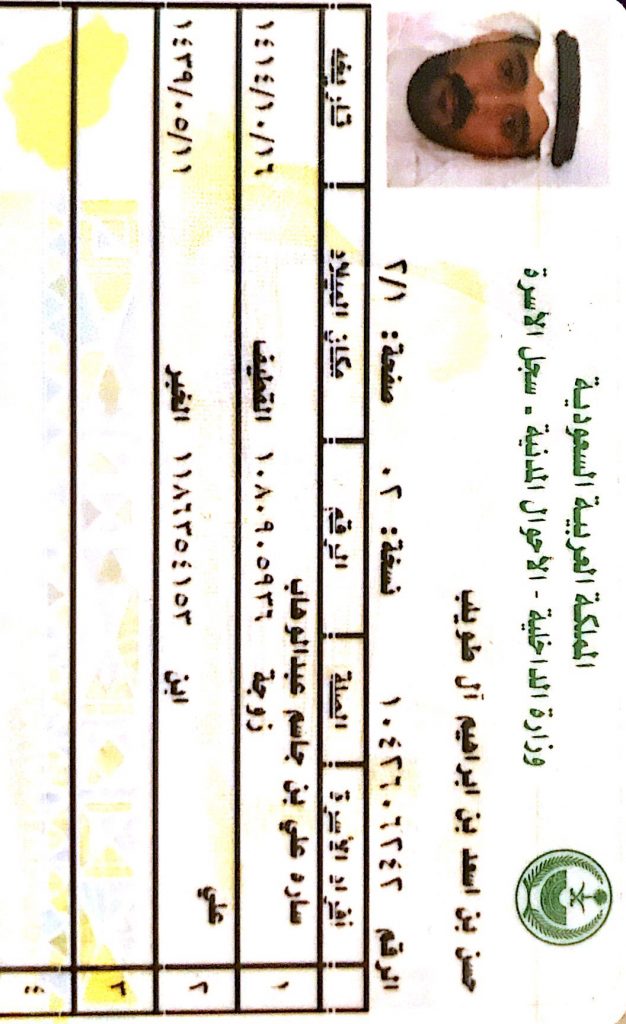 المملكة العربية السعودية
وزارة الداخلية - الأحوال المدنية - سجل الأسرة
حسن بن اسعد بن ابراهيم آل طويلب
الرقم ١٠٤٢٦٠٦٢٤٢ نسخة: ٠٢ صفحة: ٢/١
أفراد الأسرة الصلة الرقم مكان الميلاد تاريخه
١ ساره علي بن جاسم عبدالوهاب
زوجة ١٠٨٠٩٠٥٩٣٦ القطيف ١٤١٤/١٠/١٦
٢ علي ابن ١١٨٦٣٥٤١٥٣ الخبر ١٤٣٩/٠٥/١١
٣
٤